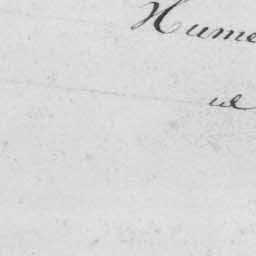 Hume
ul